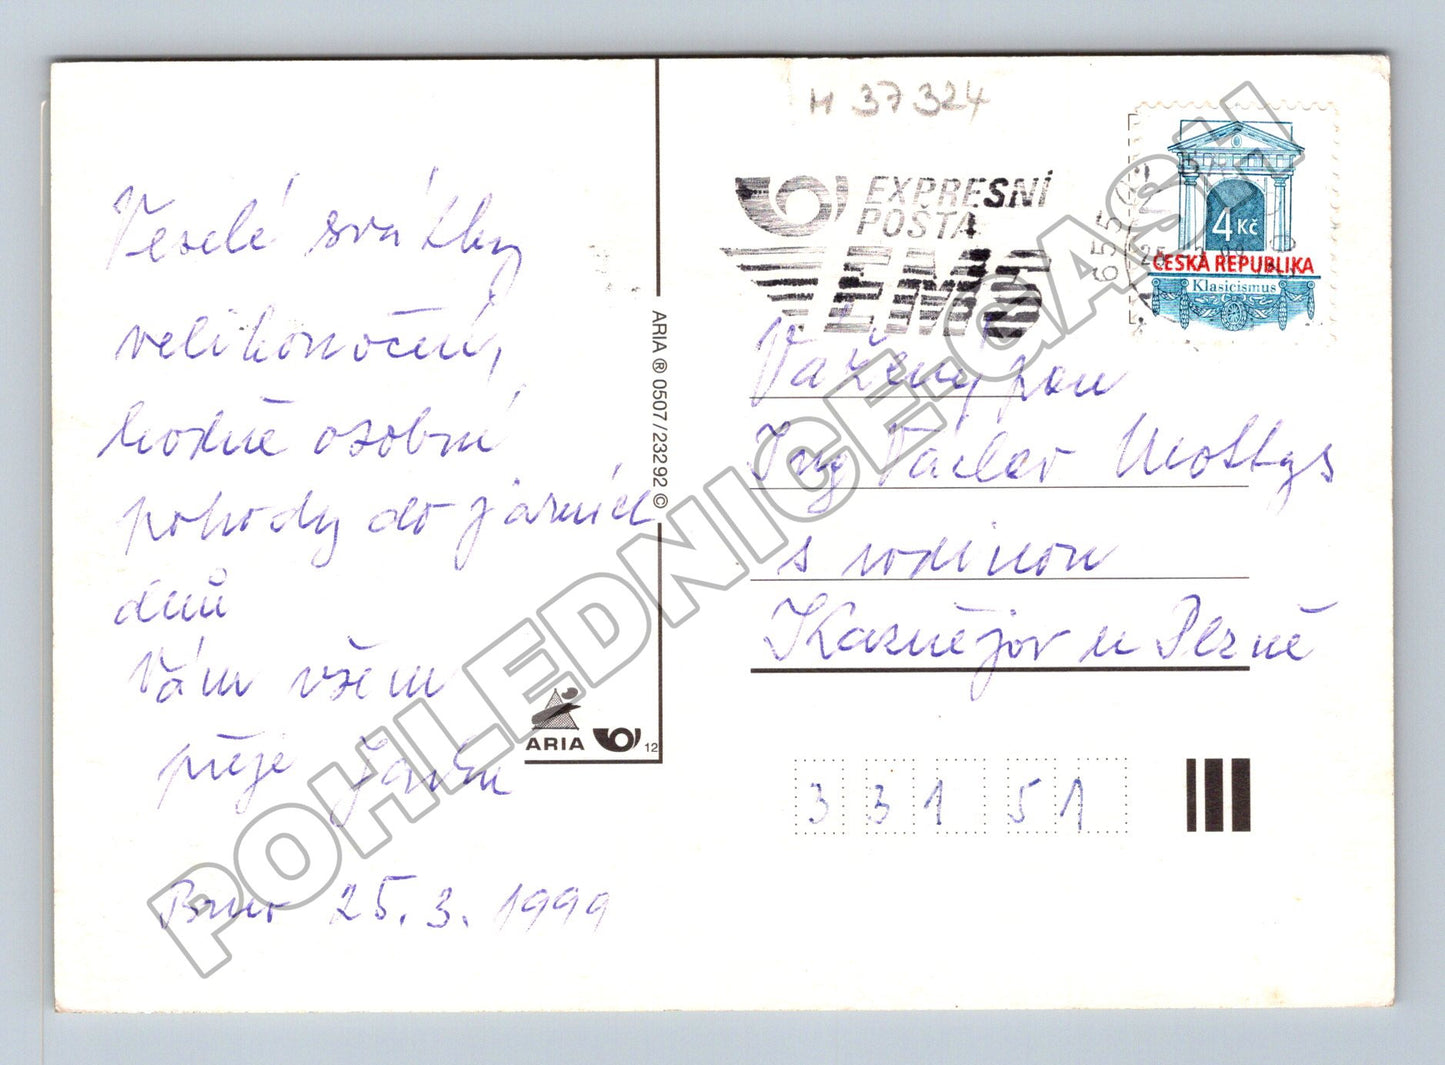 Veselé svátky
velikonoční,
hodně osobní
pohody do jarních
dnů
Vám všem
přeje Jarka
Brno 25.3.1999
ARIA ® 0507/232 92 ©
ARIA
12
M 37 324
EXPRESNÍ
POŠTA
EMS
655
25
4 Kč
ČESKÁ REPUBLIKA
Klasicismus
Vážený pan
Ing Václav
s rodinou
Kaznějov u Plzně
331 51
POHLEDNICE-GASH